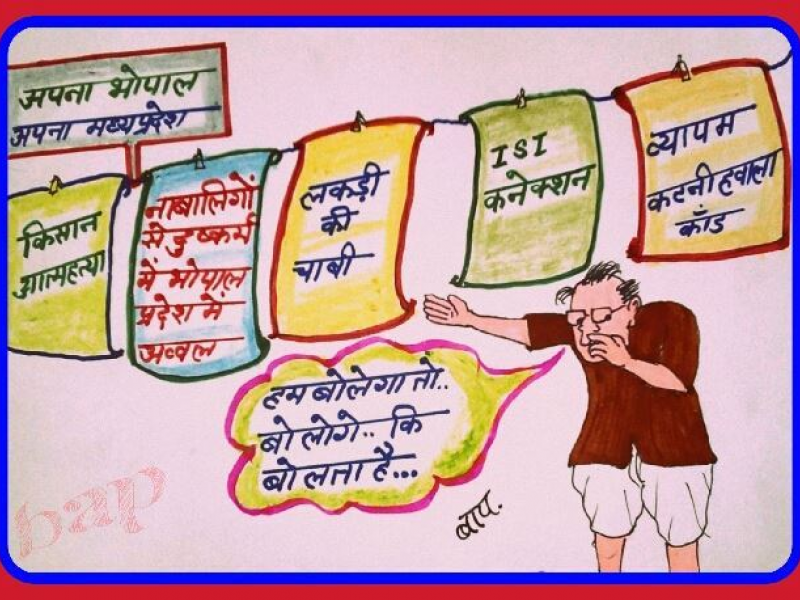 अपना भोपाल
अपना मध्यप्रदेश
किसान
आत्महत्या
नाबालिगों
से दुष्कर्म
में भोपाल
प्रदेश में
अव्वल
लकड़ी
की
चाबी
ISI
कनेक्शन
व्यापम
कटनी हवाला
काँड
हम बोलेगा तो..
बोलोगे.. कि
बोलता है...
बाप.
bap